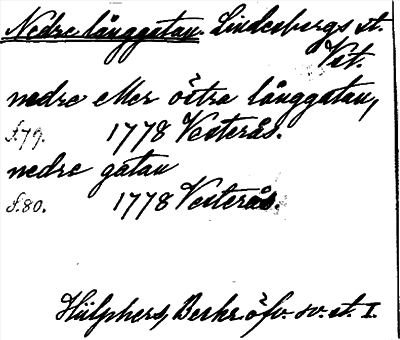 Nedre långgatan. Lindesbergs st.
Vst.
nedre eller östra långgatan,
s.79. 1778 Vesterås.
nedre gatan
s.80. 1778 Vesterås.
Hülphers, Berkr. öfv. sv. st. I.